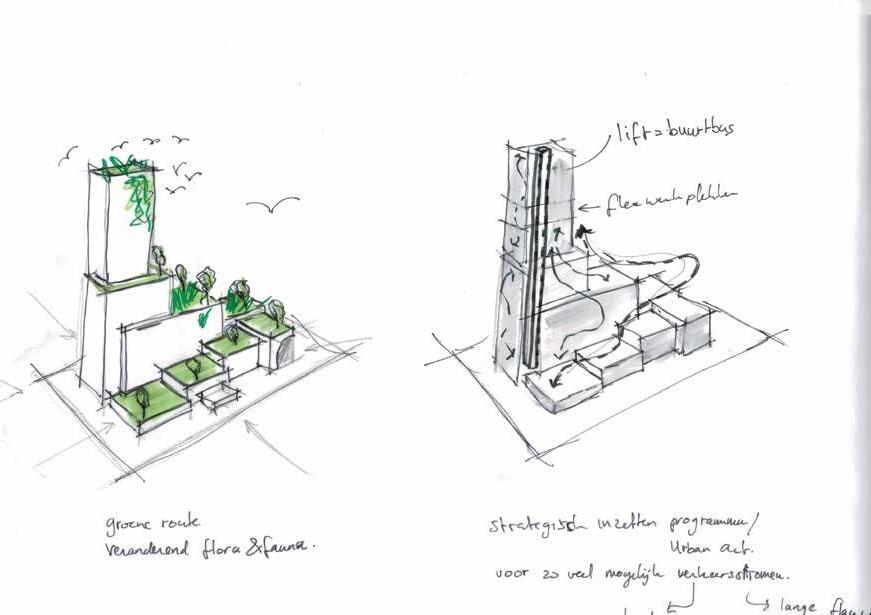 lift = buurtbus
flexwerkplekken
groene route
veranderend flora & fauna.
strategisch inzetten programma/
Urban act.
voor zo veel mogelijk verkeersstromen.
lange